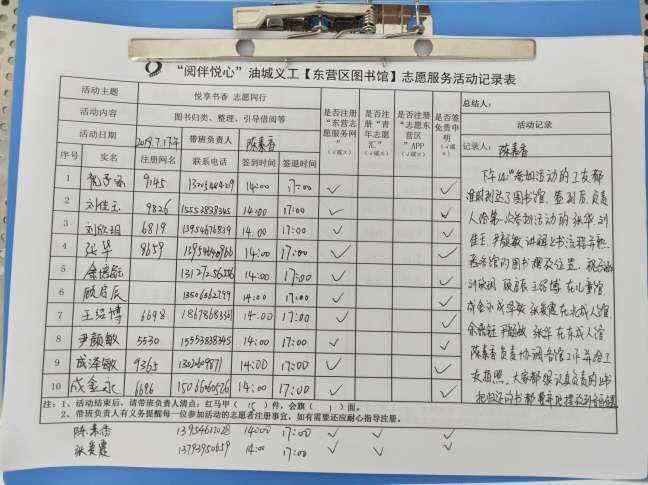 “阅伴悦心”油城义工【东营区图书馆】志愿服务活动记录表
活动主题 悦享书香 志愿同行
活动内容 图书归类、整理、引导借阅等
活动日期 2019.7.17下午 带班负责人 陈素香
序号 实名 注册网名 联系电话 签到时间 签退时间 是否注册“东营志愿服务网”(√或×) 是否注册“青年志愿汇”(√或×) 是否注册“志愿东营区”APP(√或×) 是否签免责申明(√或×)
总结人:
活动记录
记录人: 陈素香
1 9145 14:00 17:00 ✓ ✓
2 刘佳玉 9826 15553838345 14:00 17:00 ✓ ✓
3 刘欣玥 6819 13954676839 14:00 17:00 ✓ ✓
4 张华 8659 14:00 17:00 ✓ ✓
5 14:00 17:00 ✓ ✓
6 顾启辰 14:00 17:00 ✓ ✓
7 王绍博 6698 14:00 17:00 ✓ ✓
8 尹颜敏 5530 15553838345 14:00 17:00 ✓ ✓
9 成泽敏 9365 14:00 17:00 ✓ ✓
10 成金永 6686 14:00 17:00 ✓ ✓
下午 参加活动的义工友都
准时到达了图书馆,签到后,负责
人给第一次参加活动的张华 刘
佳玉 尹颜敏 讲解上书流程
图书馆内图书摆放位置
刘欣玥 顾启辰 王绍博 在儿童馆
成金永 成泽敏 张爱霞 在北成人馆
尹颜敏 张华 在东成人馆
陈素香负责协调各馆工作并给工
友拍照。大家都很认真负责的上书
注:1、活动结束后,请带班负责人清点:红马甲( 15 )件,会旗( 1 )面。
2、带班负责人有义务提醒每一位参加活动的志愿者注册事宜,如有需要还应耐心指导注册。
陈素香 13954612028 14:00 17:00 ✓ ✓ ✓
张爱霞 13793950659 14:00 17:00 ✓ ✓ ✓